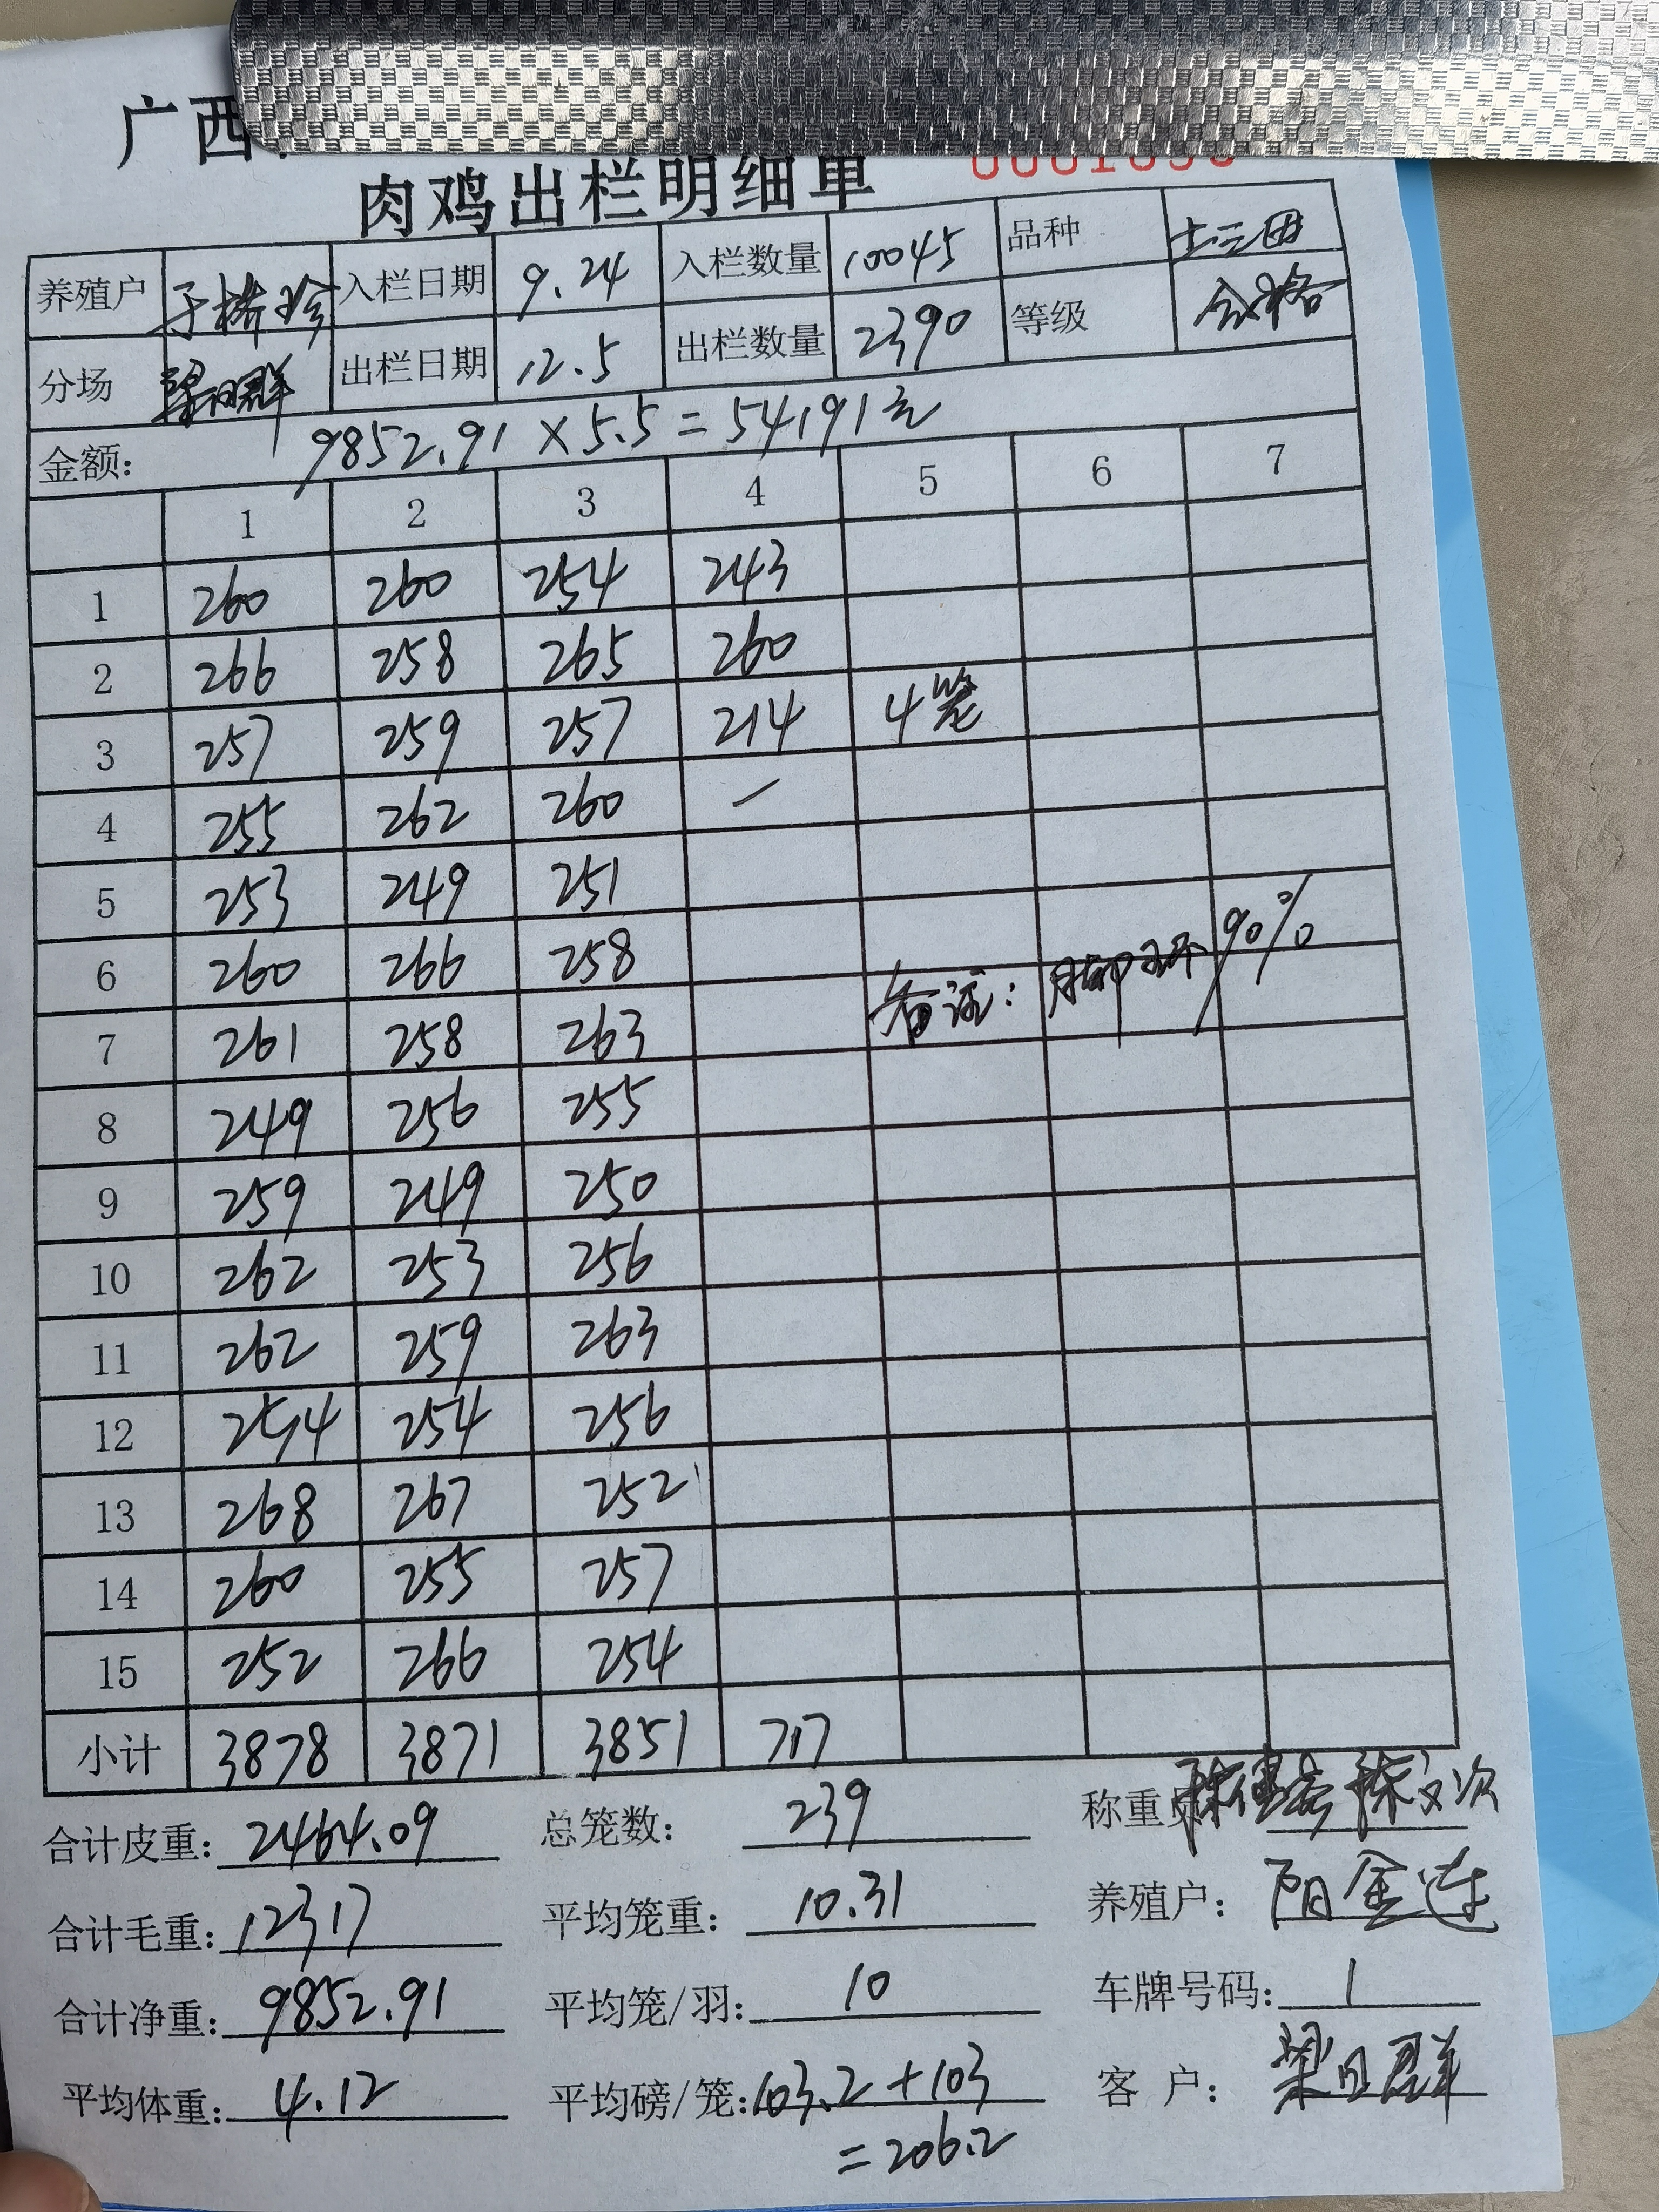 广西
肉鸡出栏明细单
养殖户 于桥珍 入栏日期 9.24 入栏数量 10045 品种 土三田
分场 梁日群 出栏日期 12.5 出栏数量 2390 等级 合格
金额: 9852.91 × 5.5 = 54191元
1 2 3 4 5 6 7
1 260 260 254 243
2 266 258 265 260
3 257 259 257 214 4笼
4 255 262 260 —
5 253 249 251
6 260 266 258
7 261 258 263 备注: 脚环90%
8 249 256 255
9 259 249 250
10 262 253 256
11 262 259 263
12 254 254 256
13 268 267 252
14 260 255 257
15 252 266 254
小计 3878 3871 3851 717
合计皮重: 2464.09 总笼数: 239 称重员
合计毛重: 12317 平均笼重: 10.31 养殖户: 阳金连
合计净重: 9852.91 平均笼/羽: 10 车牌号码: 1
平均体重: 4.12 平均磅/笼: 103.2 + 103 客 户: 梁日群
= 206.2